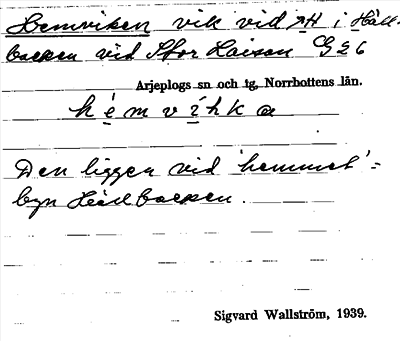 Hemviken vik vid ÄH i Häll-
backen vid Stor Laisan G 2 6
Arjeplogs sn och tg, Norrbottens län.
h é m v í h k a
Den ligger vid 'hemmet' =
byn Hällbacken.
Sigvard Wallström, 1939.